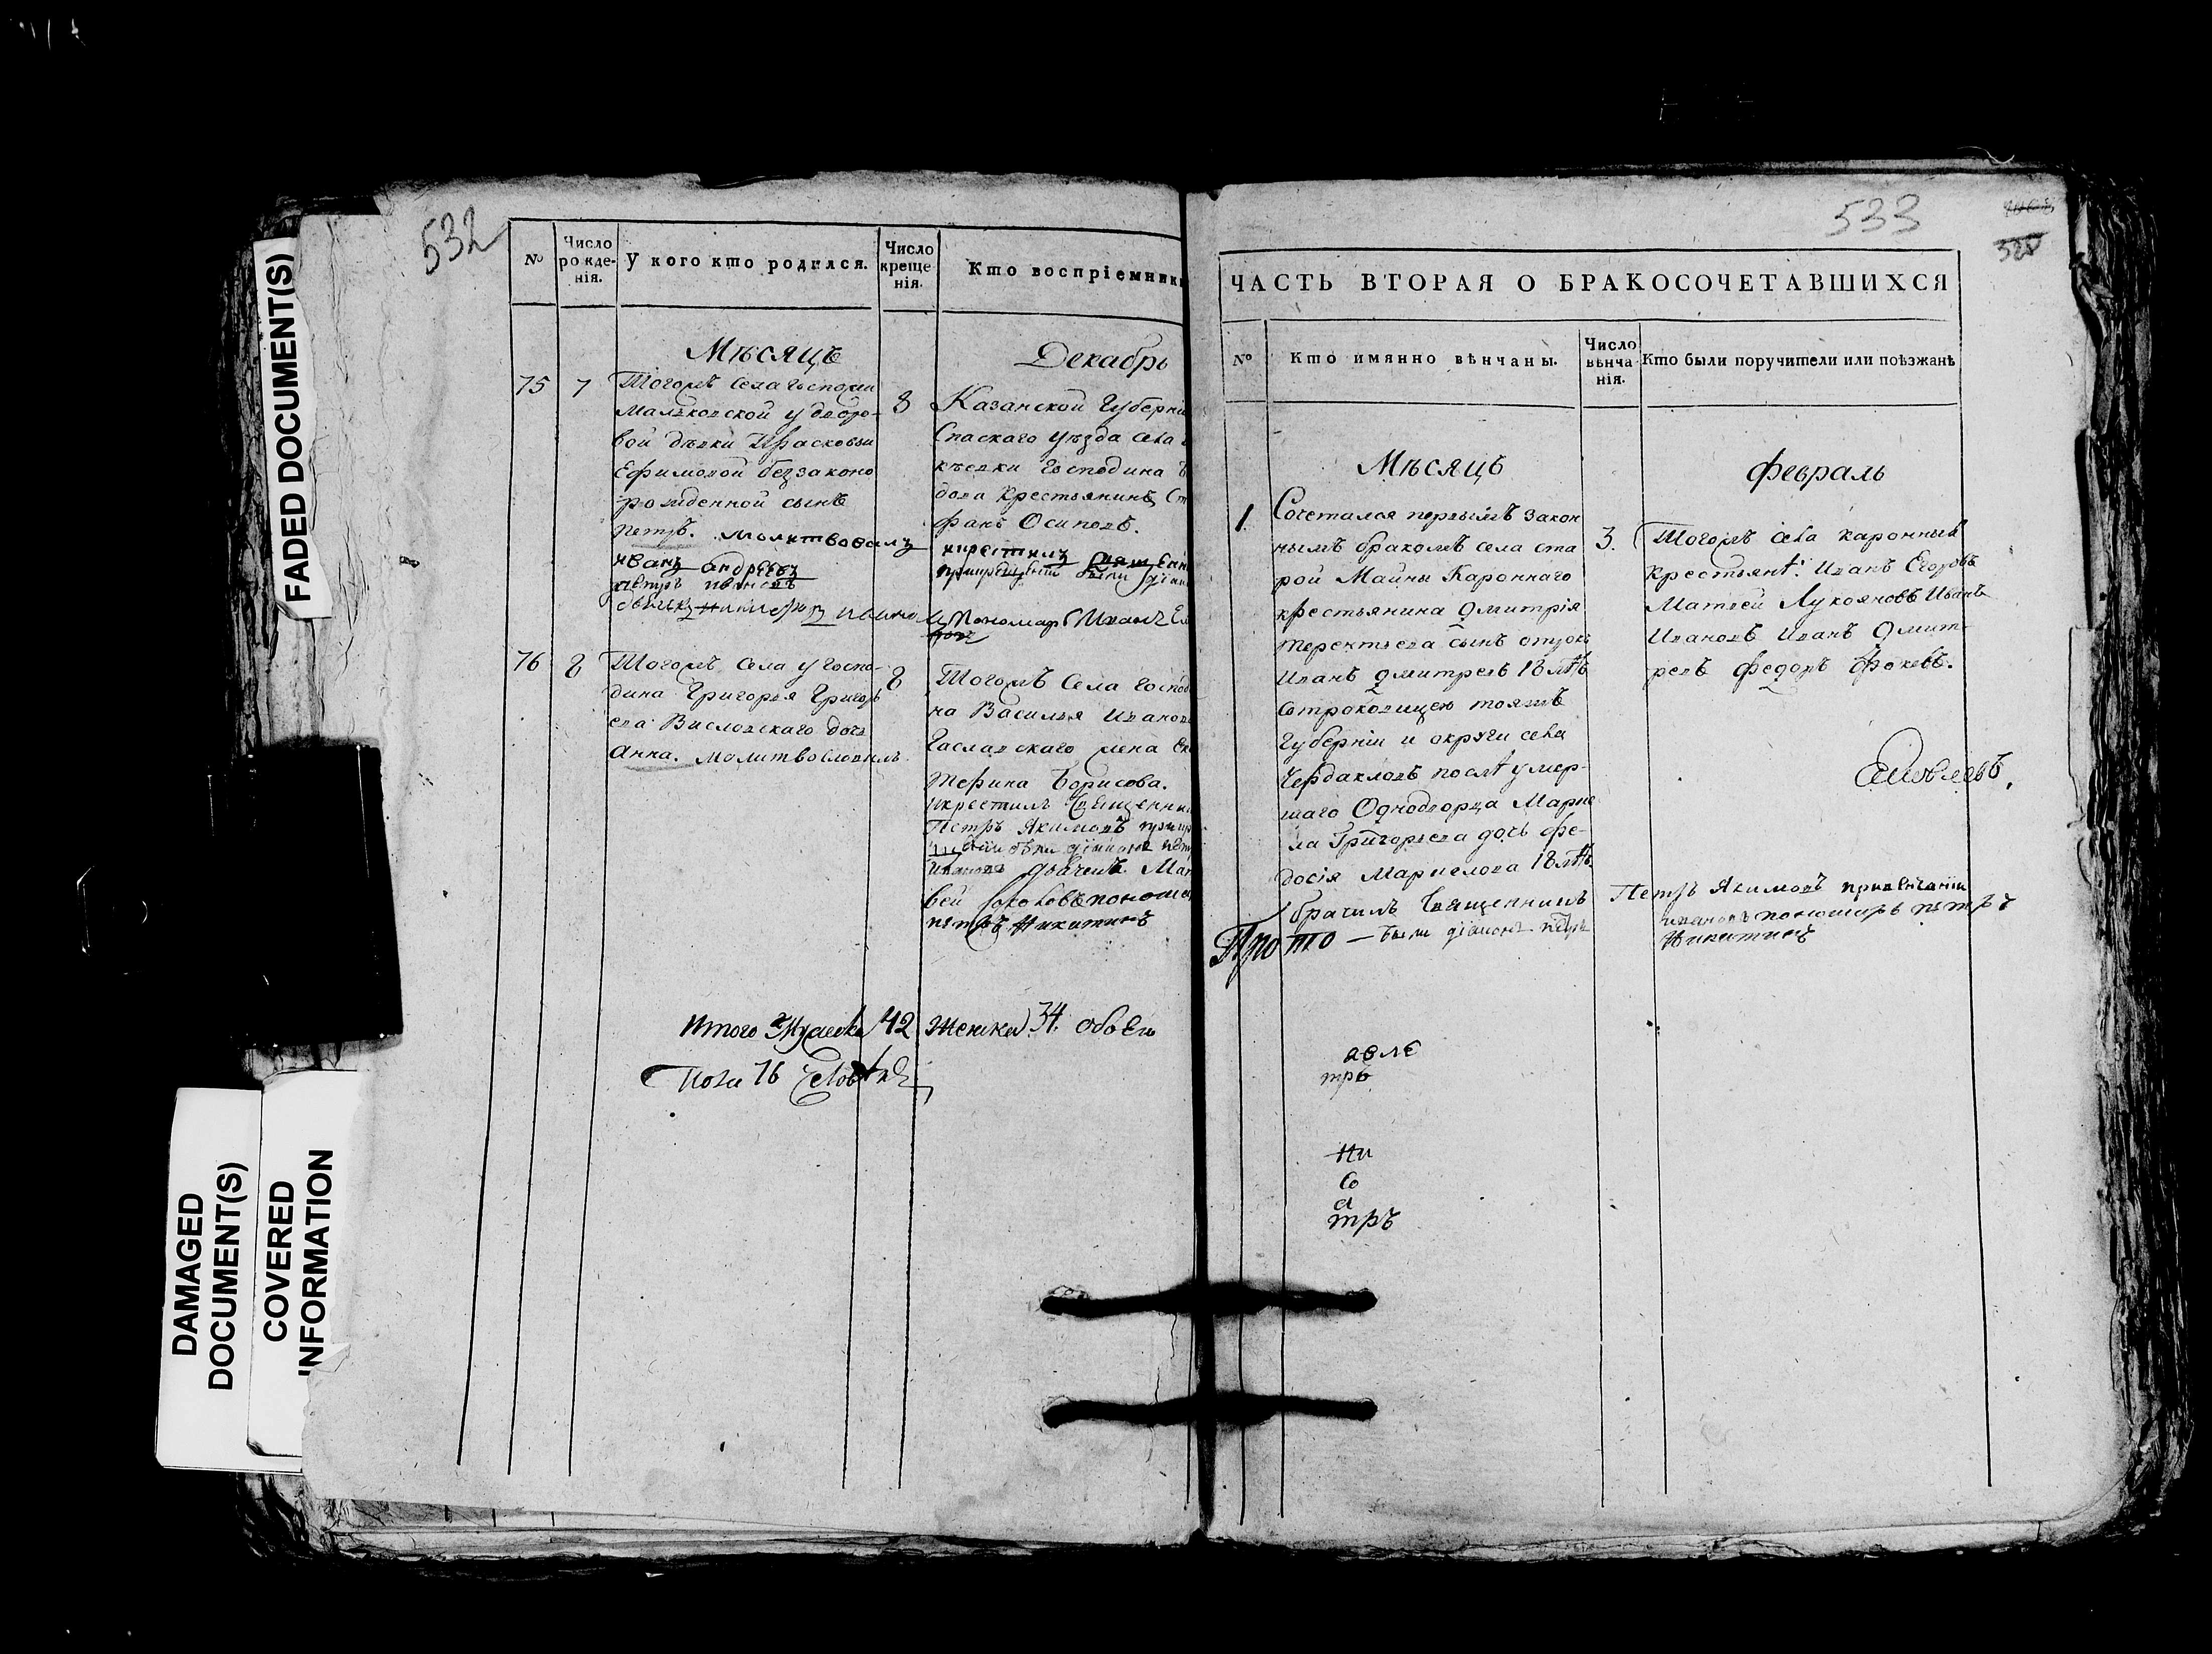 FADED DOCUMENT(S)
DAMAGED
DOCUMENT(S)
COVERED
INFORMATION
532
№
Число рожде-нія.
У кого кто родился.
Число креще-нія.
Кто воспріемник
Мѣсяцъ
Декабрь
75
7
Тогожъ села госпожи
Мальковской у дворо-
вой дѣвки Прасковьи
Ефимовой беззаконо
рожденной сынъ
Петръ. молитвовалъ
иванъ андреевъ
петръ ивановъ
8
Казанской Губерни
Спаскаго уѣзда села
господина
дова Крестьянинъ Ст
фанъ Осиповъ.
и Пономарь Иванъ
76
8
Тогожъ села у Госпо-
дина Григорья Григорь
ева Висловскаго дочь
Анна. молитвословилъ
8
Тогожъ Села Господ
на Василья Иванов
жена Ек
терина Борисова.
крестилъ Священни
Петръ Якимовъ при кр
щеніи были діаконъ петр
Ивановъ дьячекъ Мат
вей Соколовъ пономар
петръ Никитинъ
Итого Мужеска 42 Женска 34. обоего
Пола 76 Человѣкъ
533
ЧАСТЬ ВТОРАЯ О БРАКОСОЧЕТАВШИХСЯ
№
Кто имянно вѣнчаны.
Число вѣнча-нія.
Кто были поручители или поѣзжанѣ
Мѣсяцъ
Февраль
1.
Сочетался первымъ закон
нымъ бракомъ села ста
рой Майны Каронного
крестьянина Дмитрія
Терентьева сынъ отрокъ
Иванъ Дмитревъ 18 лѣтъ
Сотроковицею тояжъ
Губерніи и округи села
Чердаклов послѣ умер-
шаго Однодворца Марке
ла Григорьева дочь Фе-
досія Маркелова 18 лѣтъ
брачилъ Священникъ
Прото — были діаконъ петръ
3.
Тогожъ села каронныя
Крестьянѣ: Иванъ Егоровъ
Матвей Лукояновъ Иванъ
Ивановъ Иванъ Дмит-
ревъ Федоръ Фокеевъ.
Петръ Якимовъ при вѣнчаніи
ивановъ пономарь петръ
Никитинъ
авле
тръ
Ни
Со
а
тръ